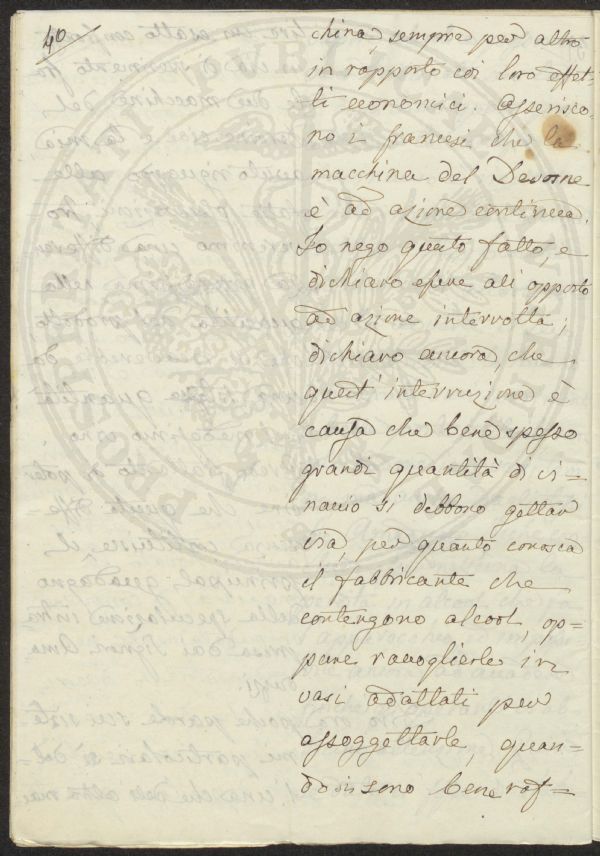 40
china, sempre per altro
in rapporto coi loro effet-
ti economici. Asserisco-
no i francesi che la
macchina del Devosne
è ad azione continua.
Io nego questo fatto, e
dichiaro essere all'opposto
ad azione interrotta;
dichiaro ancora, che
quest'interruzione è
causa che bene spesso
grandi quantità di vi-
naccio si debbono gettar
via, per quanto conosca
il fabbricante che
contengono alcool, op-
pure raccoglierle in
vasi adattati per
assoggettarle, quan-
do si sono bene raf-